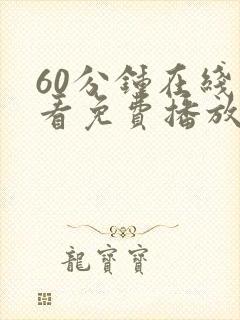 60分鍾在綫
看免費播放
龍寶寶